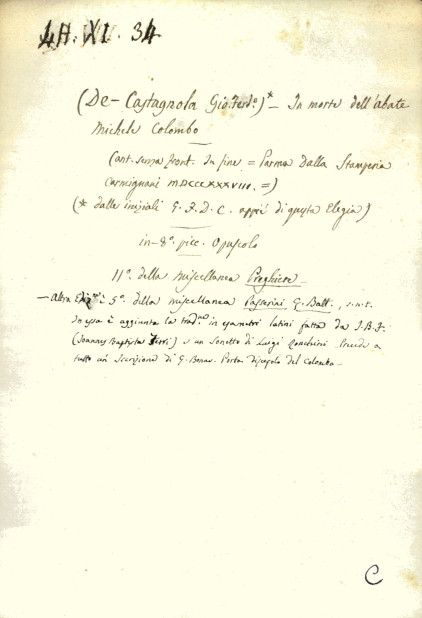 4A. XI. 34
(De-Castagnola Gio: Ferd.º)* — In morte dell'abate
Michele Colombo
(ant. senza front. In fine = Parma Dalla Stamperia
Carmignani MDCCCXXXVIII. =)
(* dalle iniziali G. F. D. C. appiè di questa Elegia)
in-8º. picc. Opuscolo
11º. della miscellanea Preghiere —
— Altra è 5º. della miscellanea Passerini G. Batt., s.n.t.
In essa è aggiunta la trad.ne in esametri latini fatta da I. B. F.
(Joannes Baptista) e un Sonetto di Luigi Precede a
tutto un' Iscrizione di G. Bonav. Porta discepolo del Colombo —
C